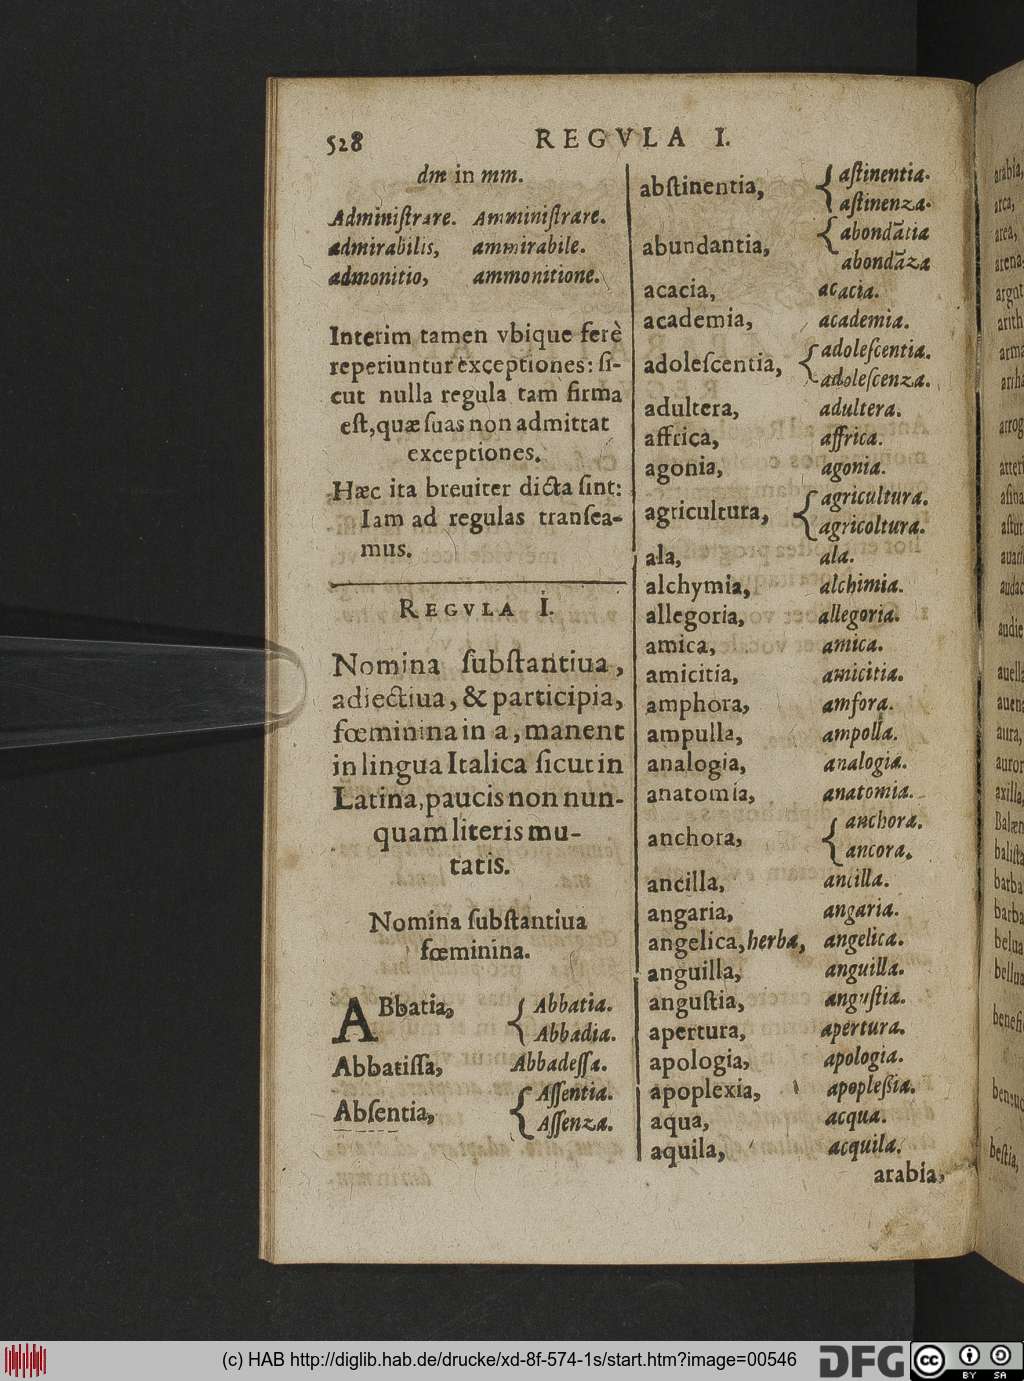 528
REGVLA I.
dm in mm.
Adminiſtrare. Amminiſtrare.
admirabilis, ammirabile.
admonitio, ammonitione.
Interim tamen vbique ferè
reperiuntur exceptiones: ſi-
cut nulla regula tam firma
eſt, quæ ſuas non admittat
exceptiones.
Hæc ita breuiter dicta ſint:
Iam ad regulas tranſea-
mus.
REGVLA I.
Nomina ſubſtantiua,
adiectiua, & participia,
fœminina in a, manent
in lingua Italica ſicut in
Latina, paucis non nun-
quam literis mu-
tatis.
Nomina ſubſtantiua
fœminina.
ABbatia, { Abbatia.
Abbadia.
Abbatiſſa, Abbadeſſa.
Abſentia, { Aſſentia.
Aſſenza.
abſtinentia, { aſtinentia.
aſtinenza.
abundantia, { abondãtia
abondãza
acacia, acacia.
academia, academia.
adoleſcentia, { adoleſcentia.
adoleſcenza.
adultera, adultera.
affrica, affrica.
agonia, agonia.
agricultura, { agricultura.
agricoltura.
ala, ala.
alchymia, alchimia.
allegoria, allegoria.
amica, amica.
amicitia, amicitia.
amphora, amfora.
ampulla, ampolla.
analogia, analogia.
anatomia, anatomia.
anchora, { anchora.
ancora.
ancilla, ancilla.
angaria, angaria.
angelica, herba, angelica.
anguilla, anguilla.
anguſtia, anguſtia.
apertura, apertura.
apologia, apologia.
apoplexia, apopleßia.
aqua, acqua.
aquila, acquila.
arabia,
arabia,
arca,
area,
arena,
arma
auar
aura,
axilla,
Balæn
baliſta
barba
barba
belua
bellua
beſtia,
(c) HAB http://diglib.hab.de/drucke/xd-8f-574-1s/start.htm?image=00546
DFG
cc
BY SA